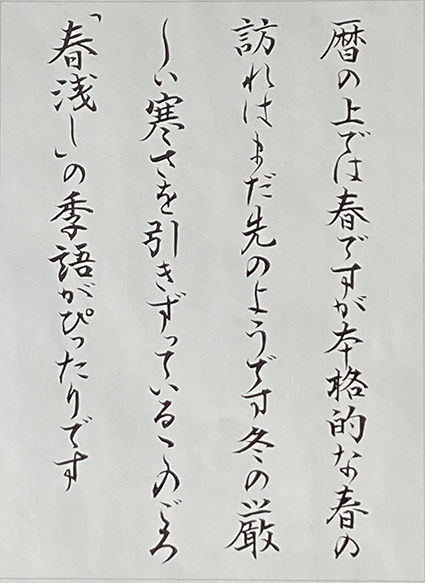 暦の上では春ですが本格的な春の
訪れはまだ先のようです冬の厳
しい寒さを引きずっているこのごろ
「春浅し」の季語がぴったりです